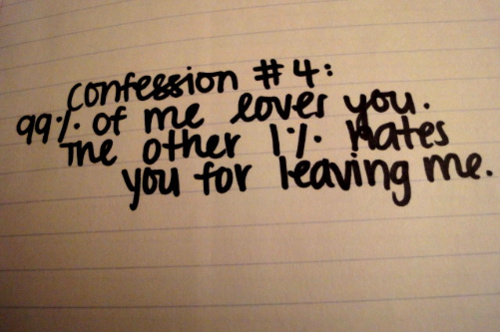 confession #4:
99% of me loves you.
The other 1% hates
you for leaving me.